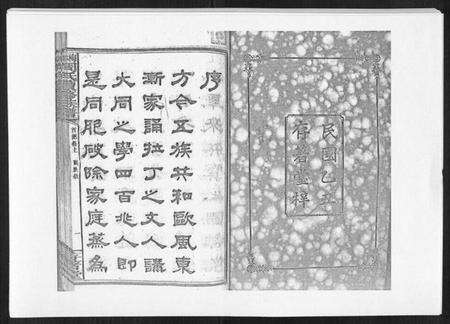 民國乙丑
存著堂梓
序
方今五族共和歐風東
漸家誦拉丁之文人講
大同之學四百兆人即
是同胞破除家庭蒸為